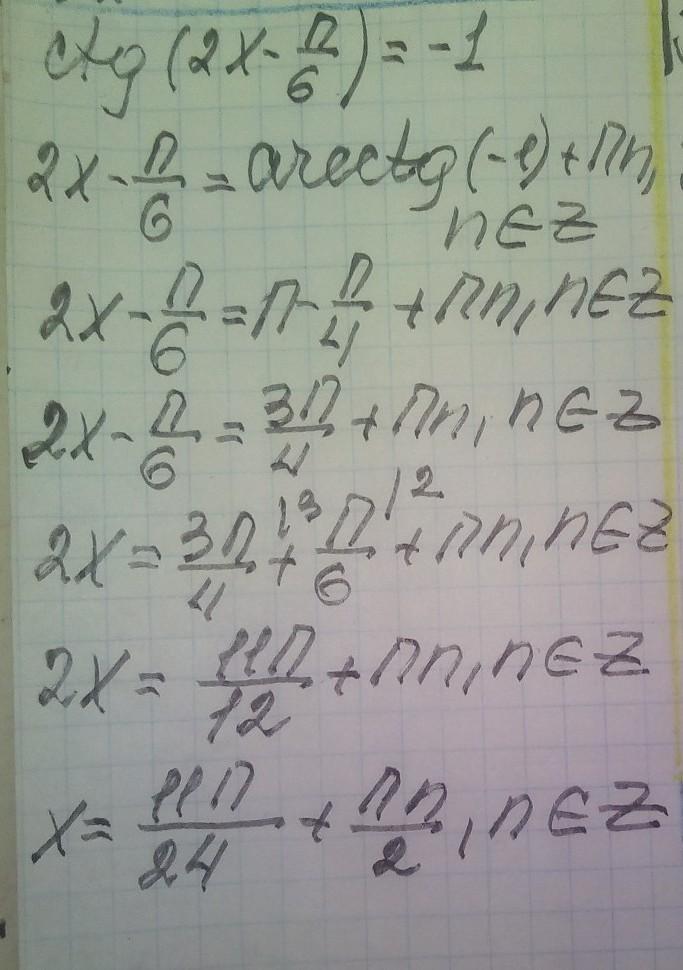 ctg(2x - π/6) = -1
2x - π/6 = arcctg(-1) + πn,
n ∈ Z
2x - π/6 = π - π/4 + πn, n ∈ Z
2x - π/6 = 3π/4 + πn, n ∈ Z
2x = 3π/4 |3 + π/6 |2 + πn, n ∈ Z
2x = 11π/12 + πn, n ∈ Z
x = 11π/24 + πn/2, n ∈ Z